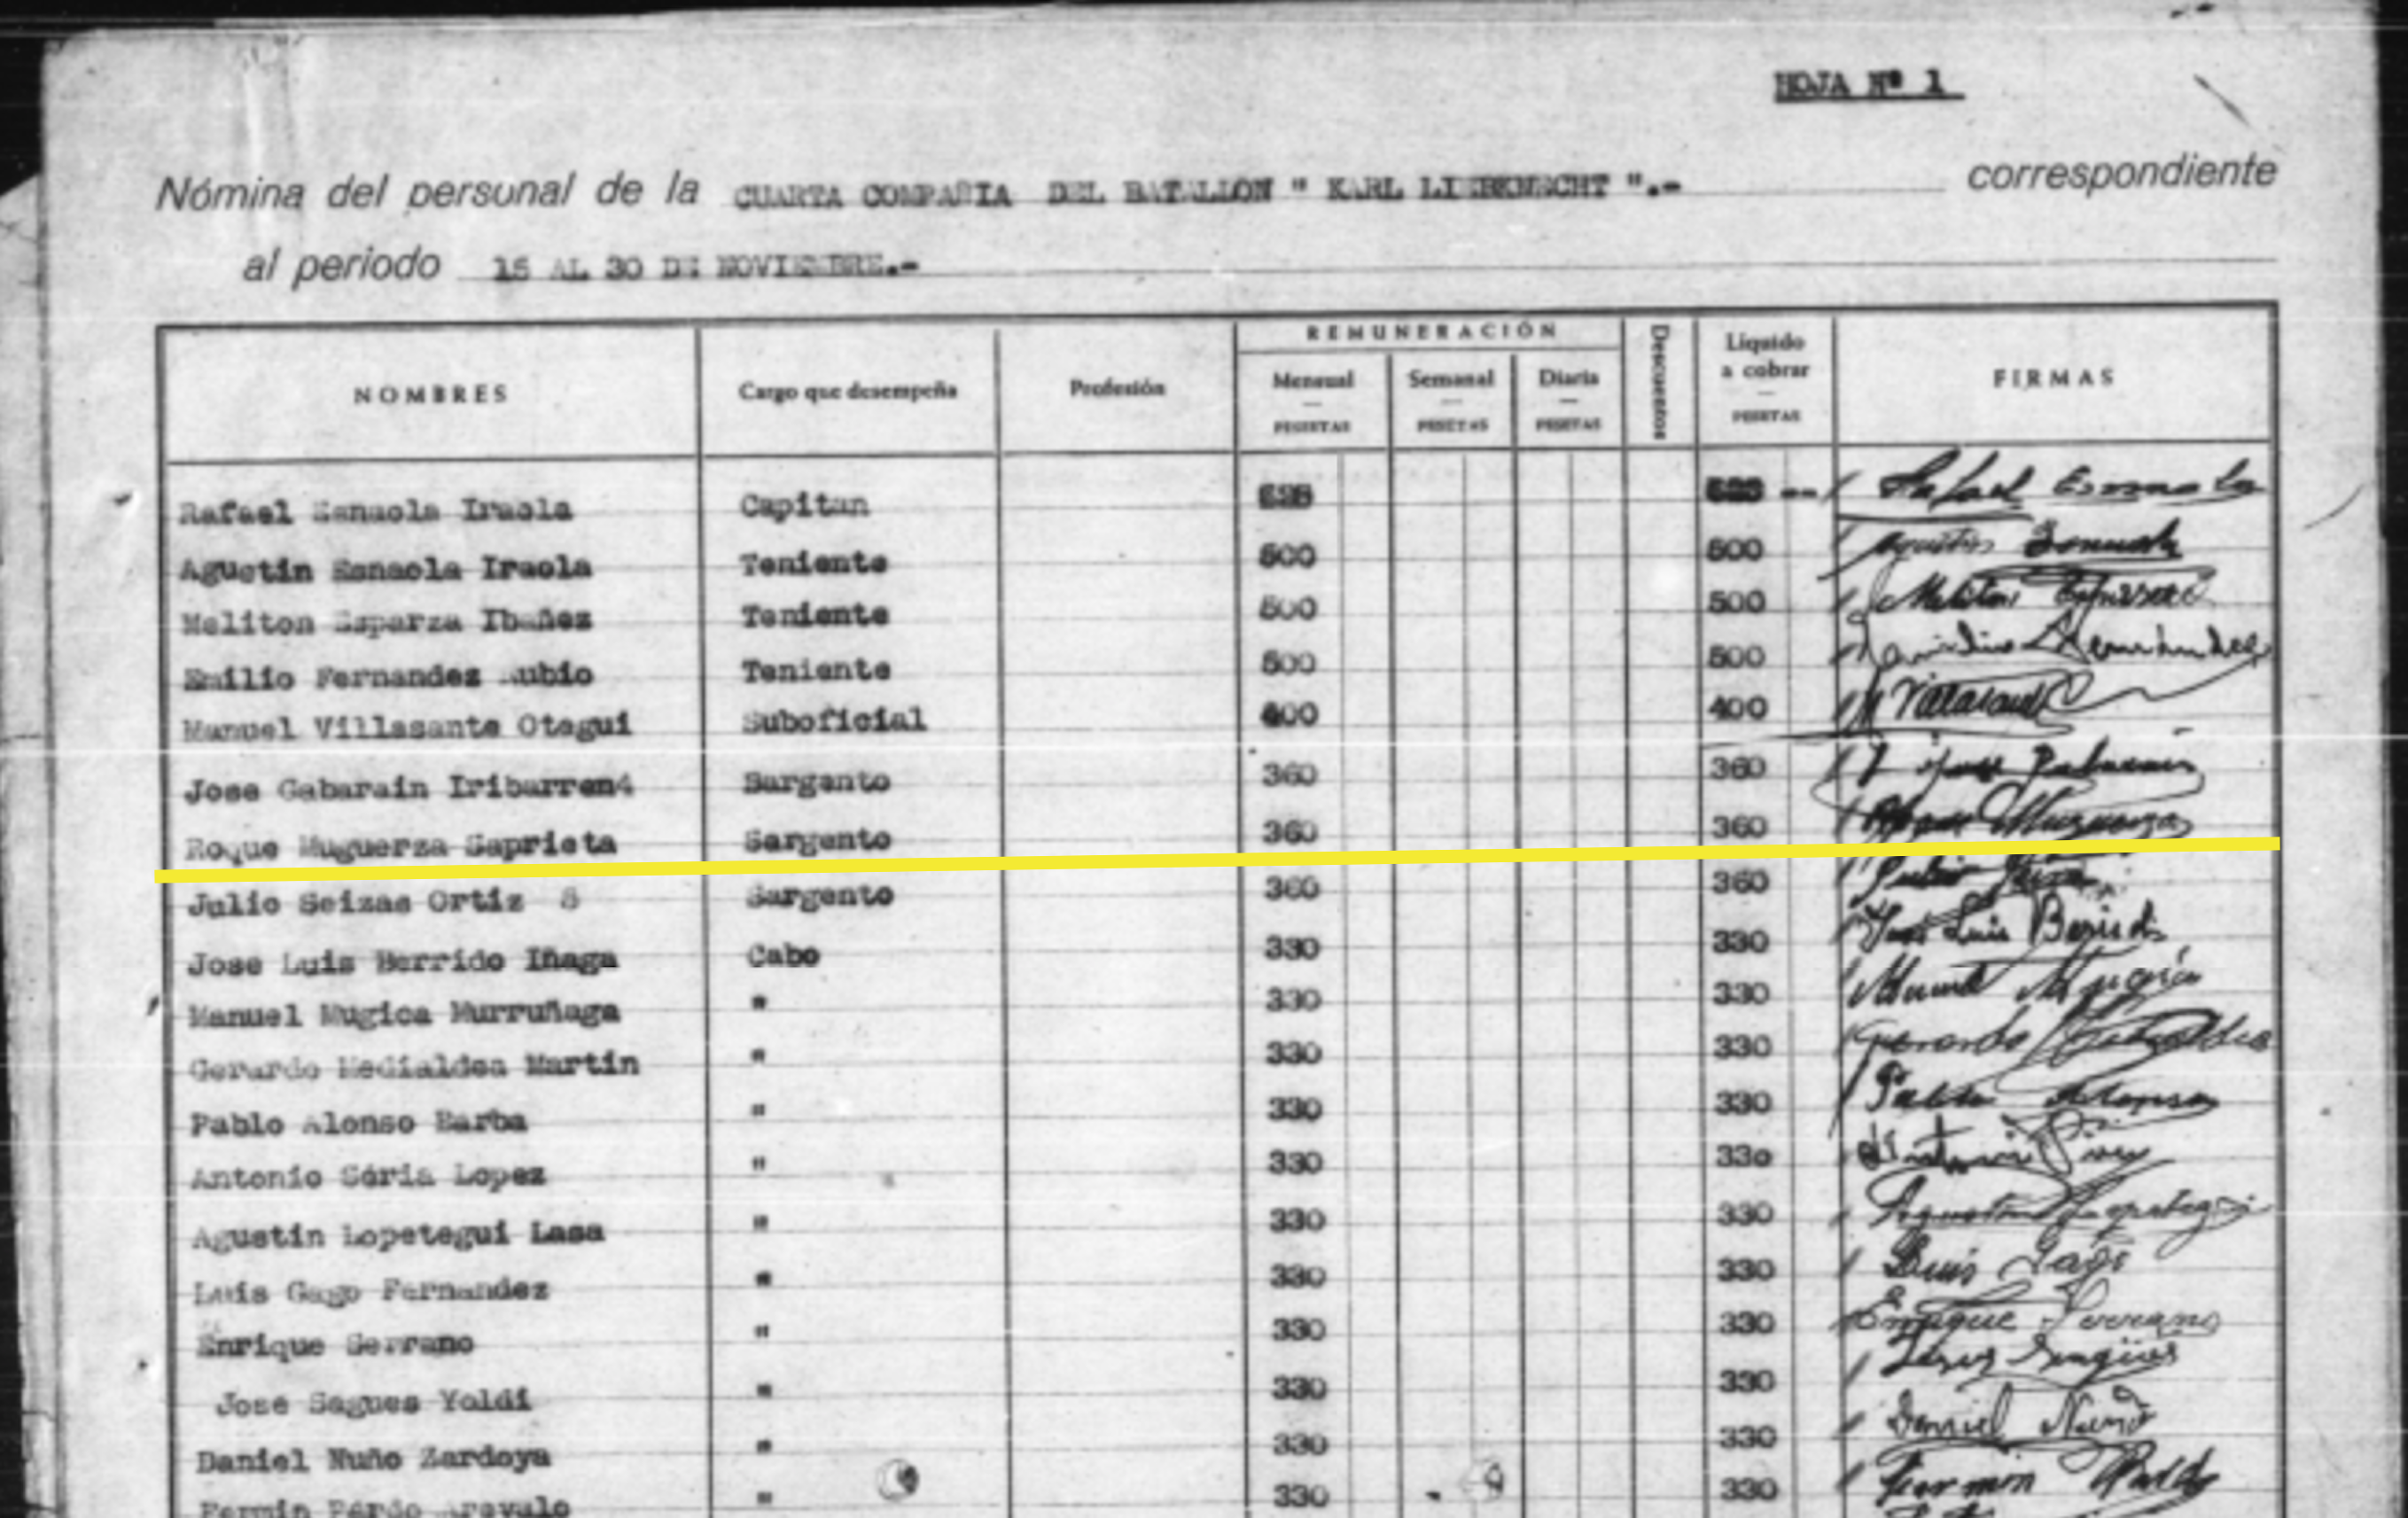 HOJA Nº 1
Nómina del personal de la CUARTA COMPAÑIA DEL BATALLON " KARL LIEBKNECHT ".- correspondiente
al periodo 15 AL 30 DE NOVIEMBRE.-
NOMBRES Cargo que desempeña Profesión REMUNERACIÓN Descuentos Líquido a cobrar PESETAS FIRMAS
Mensual PESETAS Semanal PESETAS Diaria PESETAS
Rafael Esnaola Iraola Capitan Rafael Esnaola
Agustin Esnaola Iraola Teniente 500 500 Agustin Esnaola
Meliton Esparza Ibañez Teniente 500 500 Meliton Esparza
Emilio Fernandez Rubio Teniente 500 500 Fernandez
Manuel Villasante Otegui Suboficial 400 400 M Villasante
Jose Gabarain Iribarren Sargento 360 360 Jose Gabarain
Roque Muguerza Saprieta Sargento 360 360 Roque Muguerza
Julio Seizas Ortiz S Sargento 360 360 Julio
Jose Luis Berrido Iñaga Cabo 330 330 José Luis Berrido
Manuel Mugica Murruñaga " 330 330 Manuel Mugica
Gerardo Medialdea Martin " 330 330 Gerardo Medialdea
Pablo Alonso Barba " 330 330 Pablo Alonso
Antonio Soria Lopez " 330 330 Antonio
Agustin Lopetegui Lasa " 330 330 Agustin Lopetegui
Luis Gago Fernandez " 330 330 Luis Gago
Enrique Serrano " 330 330 Enrique Serrano
Jose Sagues Yoldi " 330 330 Sagües
Daniel Nuño Zardoya " 330 330 Daniel Nuño
Fermin Pardo Arevalo " 330 330 Fermin Pardo